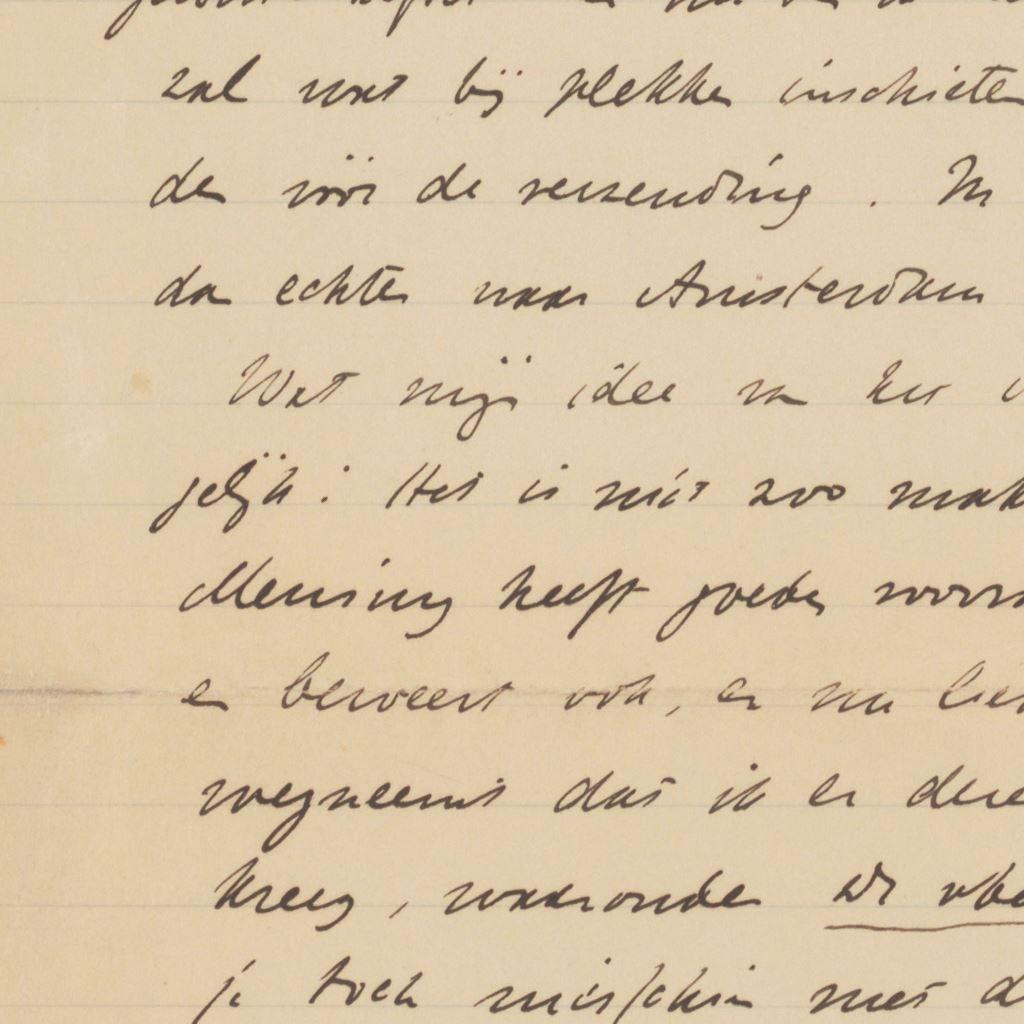 zal wat bij plekken inschieten
den vóór de verzending. In
dan echter naar Amsterdam
Wat mijn idee van het
gelijk: Het is niet zoo mak
Mensing heeft goede
er beweert ook, er nu
wegneemt dat ik er
kreeg, waaronder
je toch misschien met